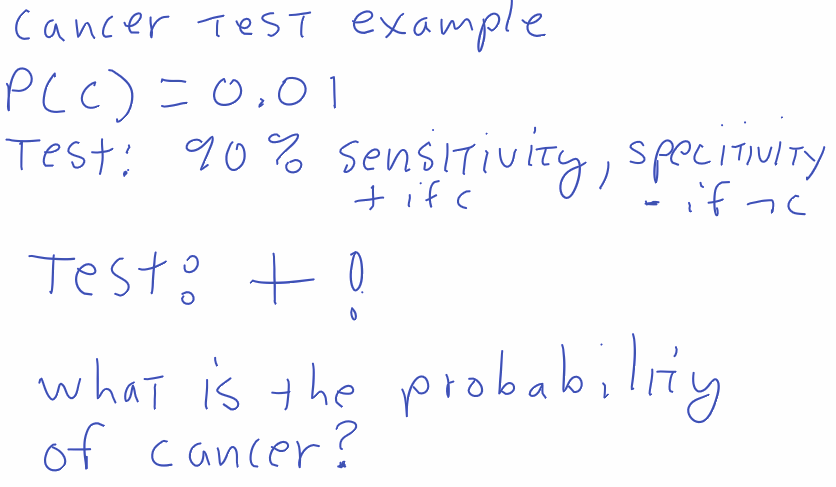 Cancer Test example
P(C) = 0.01
Test: 90% sensitivity, specitivity
+ if C - if ¬C
Test: + !
what is the probability
of cancer?